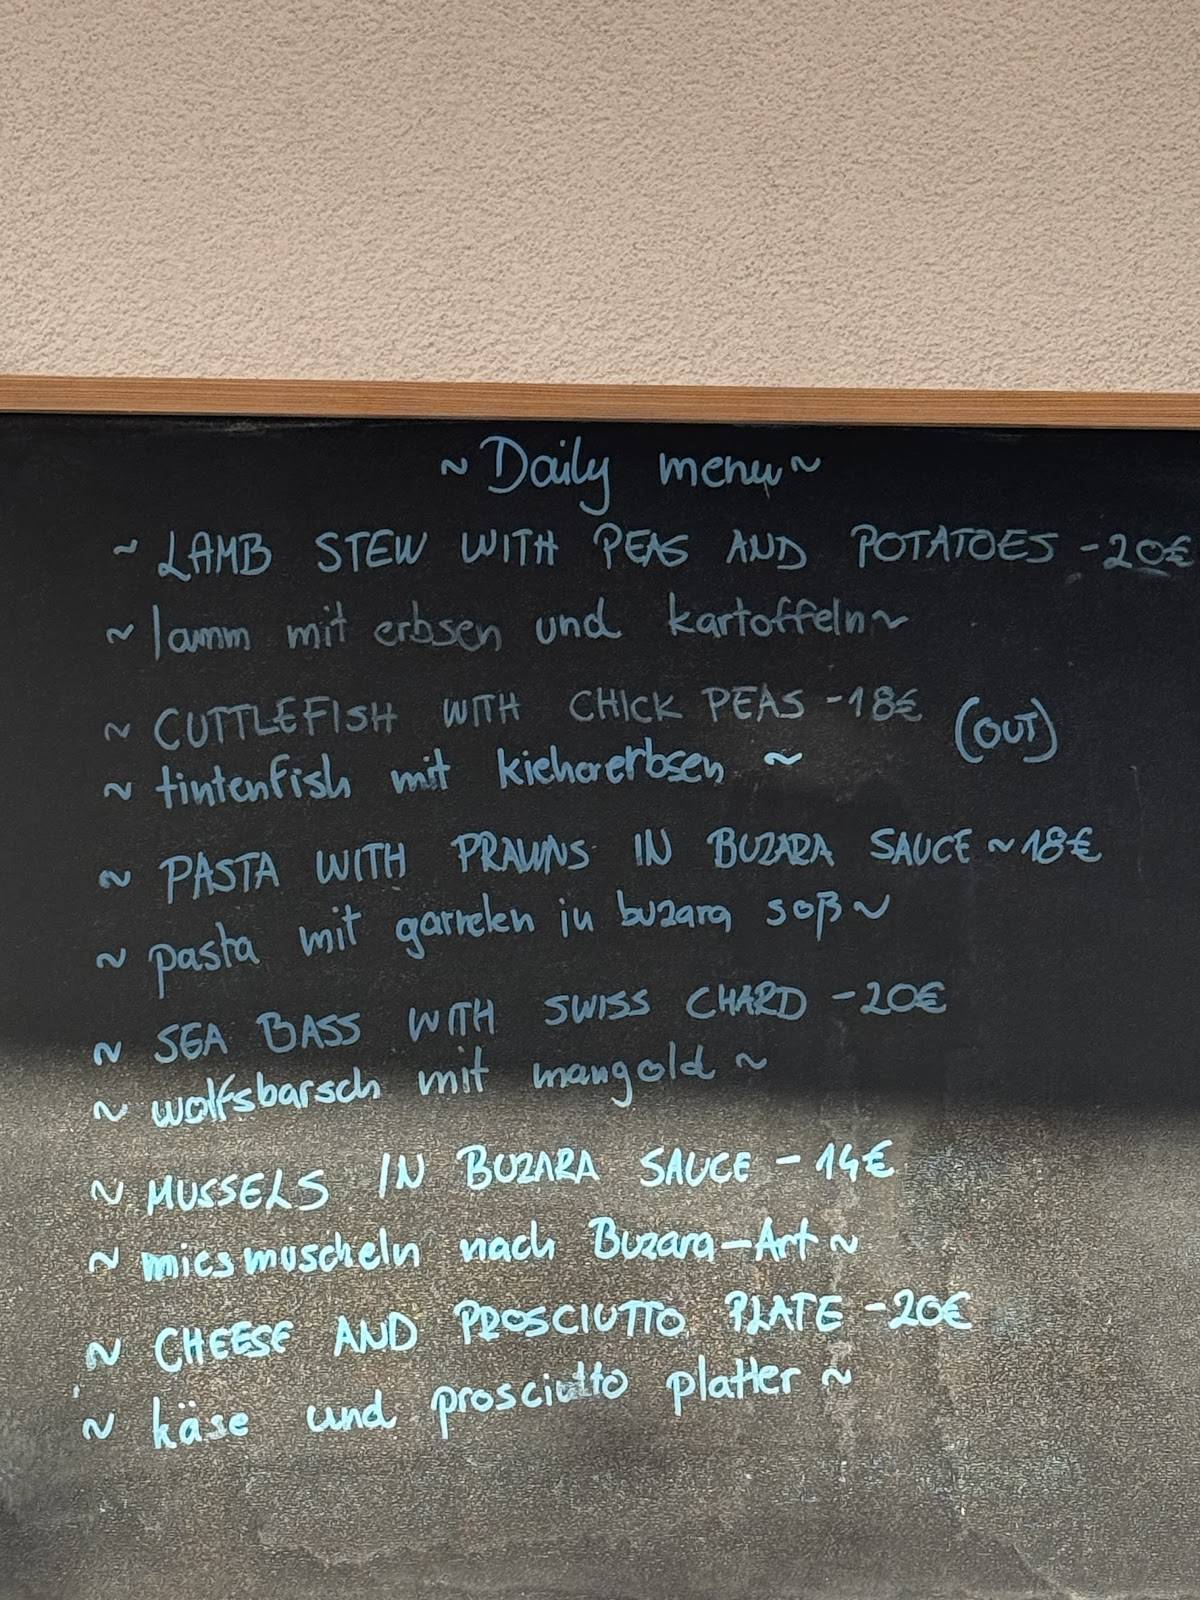 ~ Daily menu ~
~ LAMB STEW WITH PEAS AND POTATOES - 20€
~ lamm mit erbsen und kartoffeln ~
~ CUTTLEFISH WITH CHICK PEAS - 18€ (OUT)
~ tintenfish mit kichererbsen ~
~ PASTA WITH PRAWNS IN BUZARA SAUCE ~ 18€
~ pasta mit garnelen in buzara soß ~
~ SEA BASS WITH SWISS CHARD - 20€
~ wolfsbarsch mit mangold ~
~ MUSSELS IN BUZARA SAUCE - 14€
~ miesmuscheln nach Buzara-Art ~
~ CHEESE AND PROSCIUTTO PLATE - 20€
~ käse und prosciutto platter ~